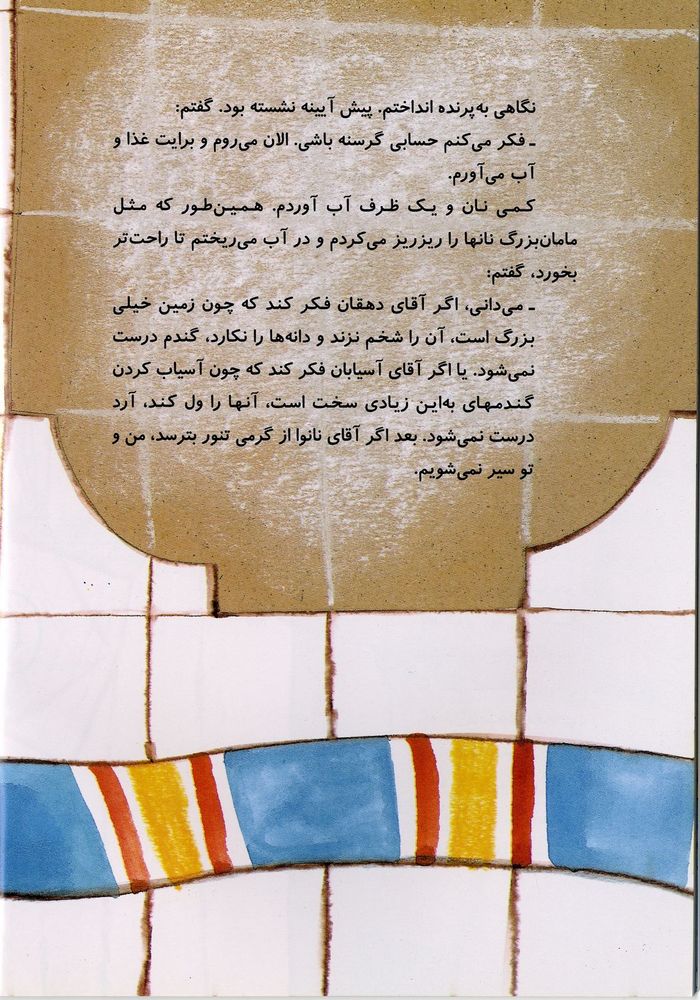 نگاهی به‌پرنده انداختم. پیش آیینه نشسته بود. گفتم:
ـ فکر می‌کنم حسابی گرسنه باشی. الان می‌روم و برایت غذا و
آب می‌آورم.
کمی نان و یک ظرف آب آوردم. همین‌طور که مثل
مامان‌بزرگ نانها را ریزریز می‌کردم و در آب می‌ریختم تا راحت‌تر
بخورد، گفتم:
ـ می‌دانی، اگر آقای دهقان فکر کند که چون زمین خیلی
بزرگ است، آن را شخم نزند و دانه‌ها را نکارد، گندم درست
نمی‌شود. یا اگر آقای آسیابان فکر کند که چون آسیاب کردن
گندمهای به‌این زیادی سخت است، آنها را ول کند، آرد
درست نمی‌شود. بعد اگر آقای نانوا از گرمی تنور بترسد، من و
تو سیر نمی‌شویم.